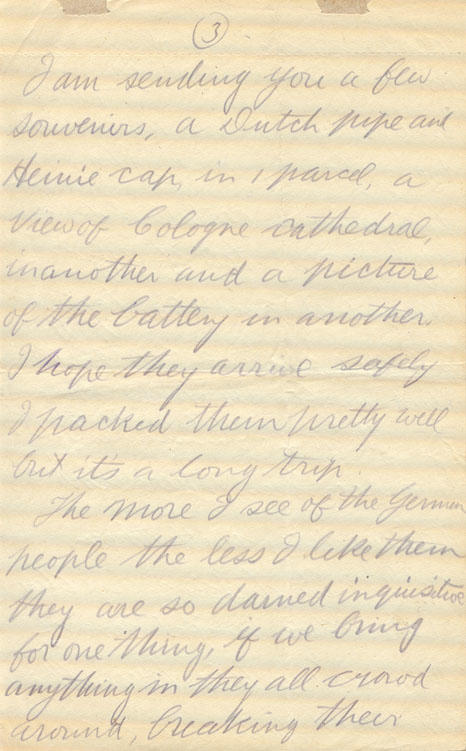 3
I am sending you a few
souvenirs, a Dutch pipe and
Heinie cap, in 1 parcel, a
view of Cologne cathedral,
in another and a picture
of the battery in another.
I hope they arrive safely
I packed them pretty well
but it's a long trip.
The more I see of the German
people the less I like them
they are so darned inquisitive
for one thing, if we bring
anything in they all crowd
around, breaking their